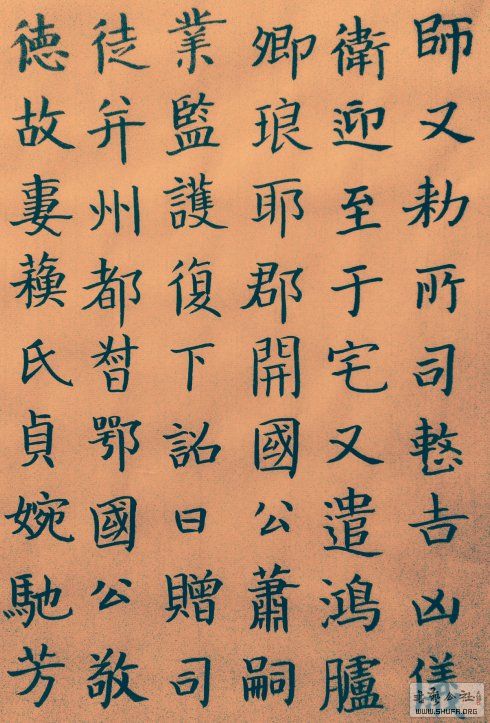 師又勅所司整吉凶儀
衛迎至于宅又遣鴻臚
卿琅耶郡開國公蕭嗣
業監護復下詔曰贈司
徒并州都督鄂國公敬
徳故妻蘓氏貞婉馳芳
WWW.SHUFA.ORG